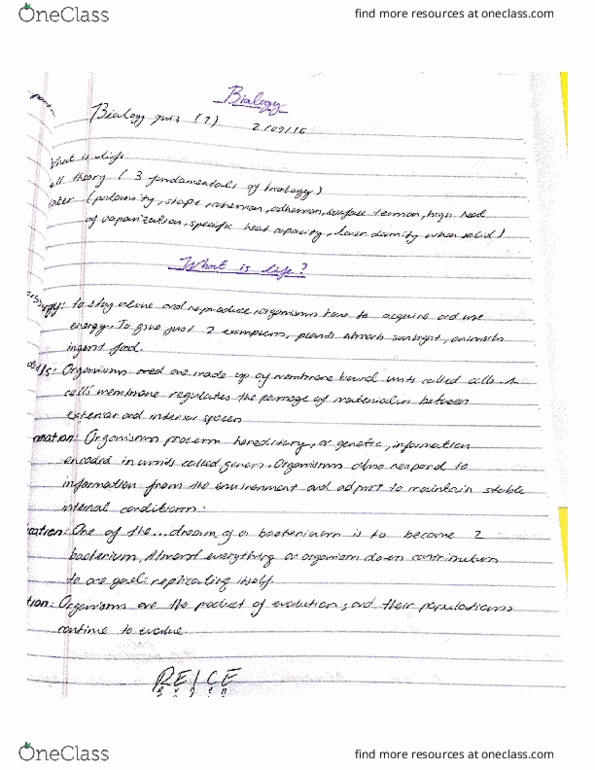 OneClass
find more resources at oneclass.com
Biology
Biology quiz (1)
2/09/16
What is life
ell theory (3 fundamentals of biology)
ater (polarity, shape, cohesion, adhesion, surface tension, high heat
of vaporization, specific heat capacity, lower density when solid)
What is life?
To stay alive and reproduce, organisms have to acquire and use
energy. To give just 2 examples, plants absorb sunlight, animals
ingest food.
Organisms are made up of membrane bound units called cells. A
cell's membrane regulates the passage of materials in between
exterior and interior spaces
mation: Organisms process hereditary, or genetic, information
encoded in units called genes. Organisms also respond to
information from the environment and adjust to maintain stable
internal conditions.
ication: One of the... dream of a bacterium is to become 2
bacterium, Almost everything an organism does contributes
to one goal: replicating itself
tion: Organisms are the product of evolution, and their populations
continue to evolve.
REICE
OneClass
find more resources at oneclass.com